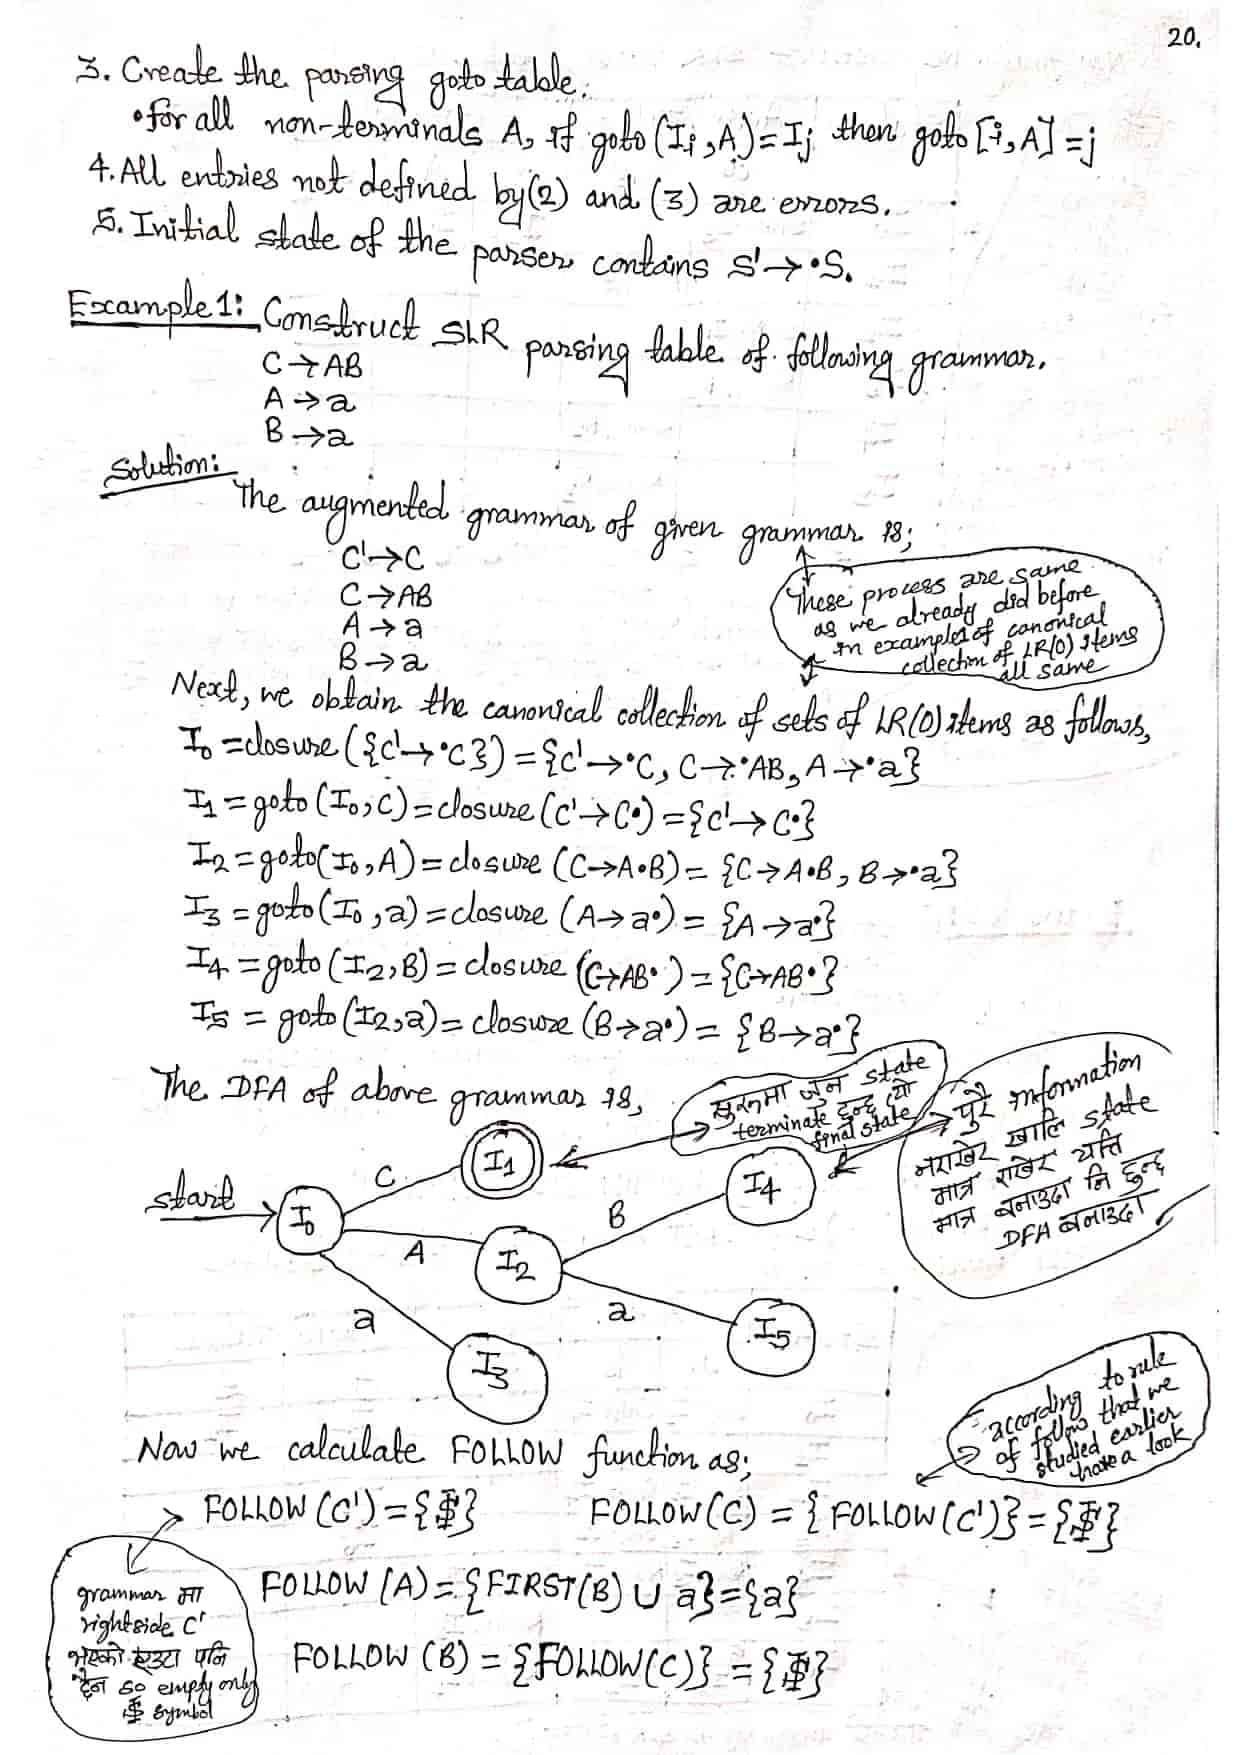 20.
3. Create the parsing goto table.
•for all non-terminals A, if goto (Ii, A) = Ij then goto [i, A] = j
4. All entries not defined by (2) and (3) are errors.
5. Initial state of the parser contains S' → •S.
Example 1: Construct SLR parsing table of following grammar.
C → AB
A → a
B → a
Solution:
The augmented grammar of given grammar is;
C' → C
C → AB
A → a
B → a
These process are same
as we already did before
in example1 of canonical
collection of LR(0) items
all same
Next, we obtain the canonical collection of sets of LR(0) items as follows,
I0 = closure ({C' → •C}) = {C' → •C, C → •AB, A → •a}
I1 = goto (I0, C) = closure (C' → C•) = {C' → C•}
I2 = goto (I0, A) = closure (C → A•B) = {C → A•B, B → •a}
I3 = goto (I0, a) = closure (A → a•) = {A → a•}
I4 = goto (I2, B) = closure (C → AB•) = {C → AB•}
I5 = goto (I2, a) = closure (B → a•) = {B → a•}
The DFA of above grammar is,
सुरुमा जुन state
terminate हुन्छ त्यो
final state
पुरै information
नराखेर खालि state
मात्र राखेर यत्ति
मात्र बनाउदा नि हुन्छ
DFA बनाउदा
start
I0
C
I1
A
I2
a
I3
B
I4
a
I5
Now we calculate FOLLOW function as;
according to rule
of follow that we
studied earlier
have a look
FOLLOW (C') = {$} FOLLOW (C) = {FOLLOW (C')} = {$}
FOLLOW (A) = {FIRST(B) ∪ a} = {a}
FOLLOW (B) = {FOLLOW(C)} = {$}
grammar मा
right side C'
भएको एउटा पनि
छैन so empty only
$ symbol